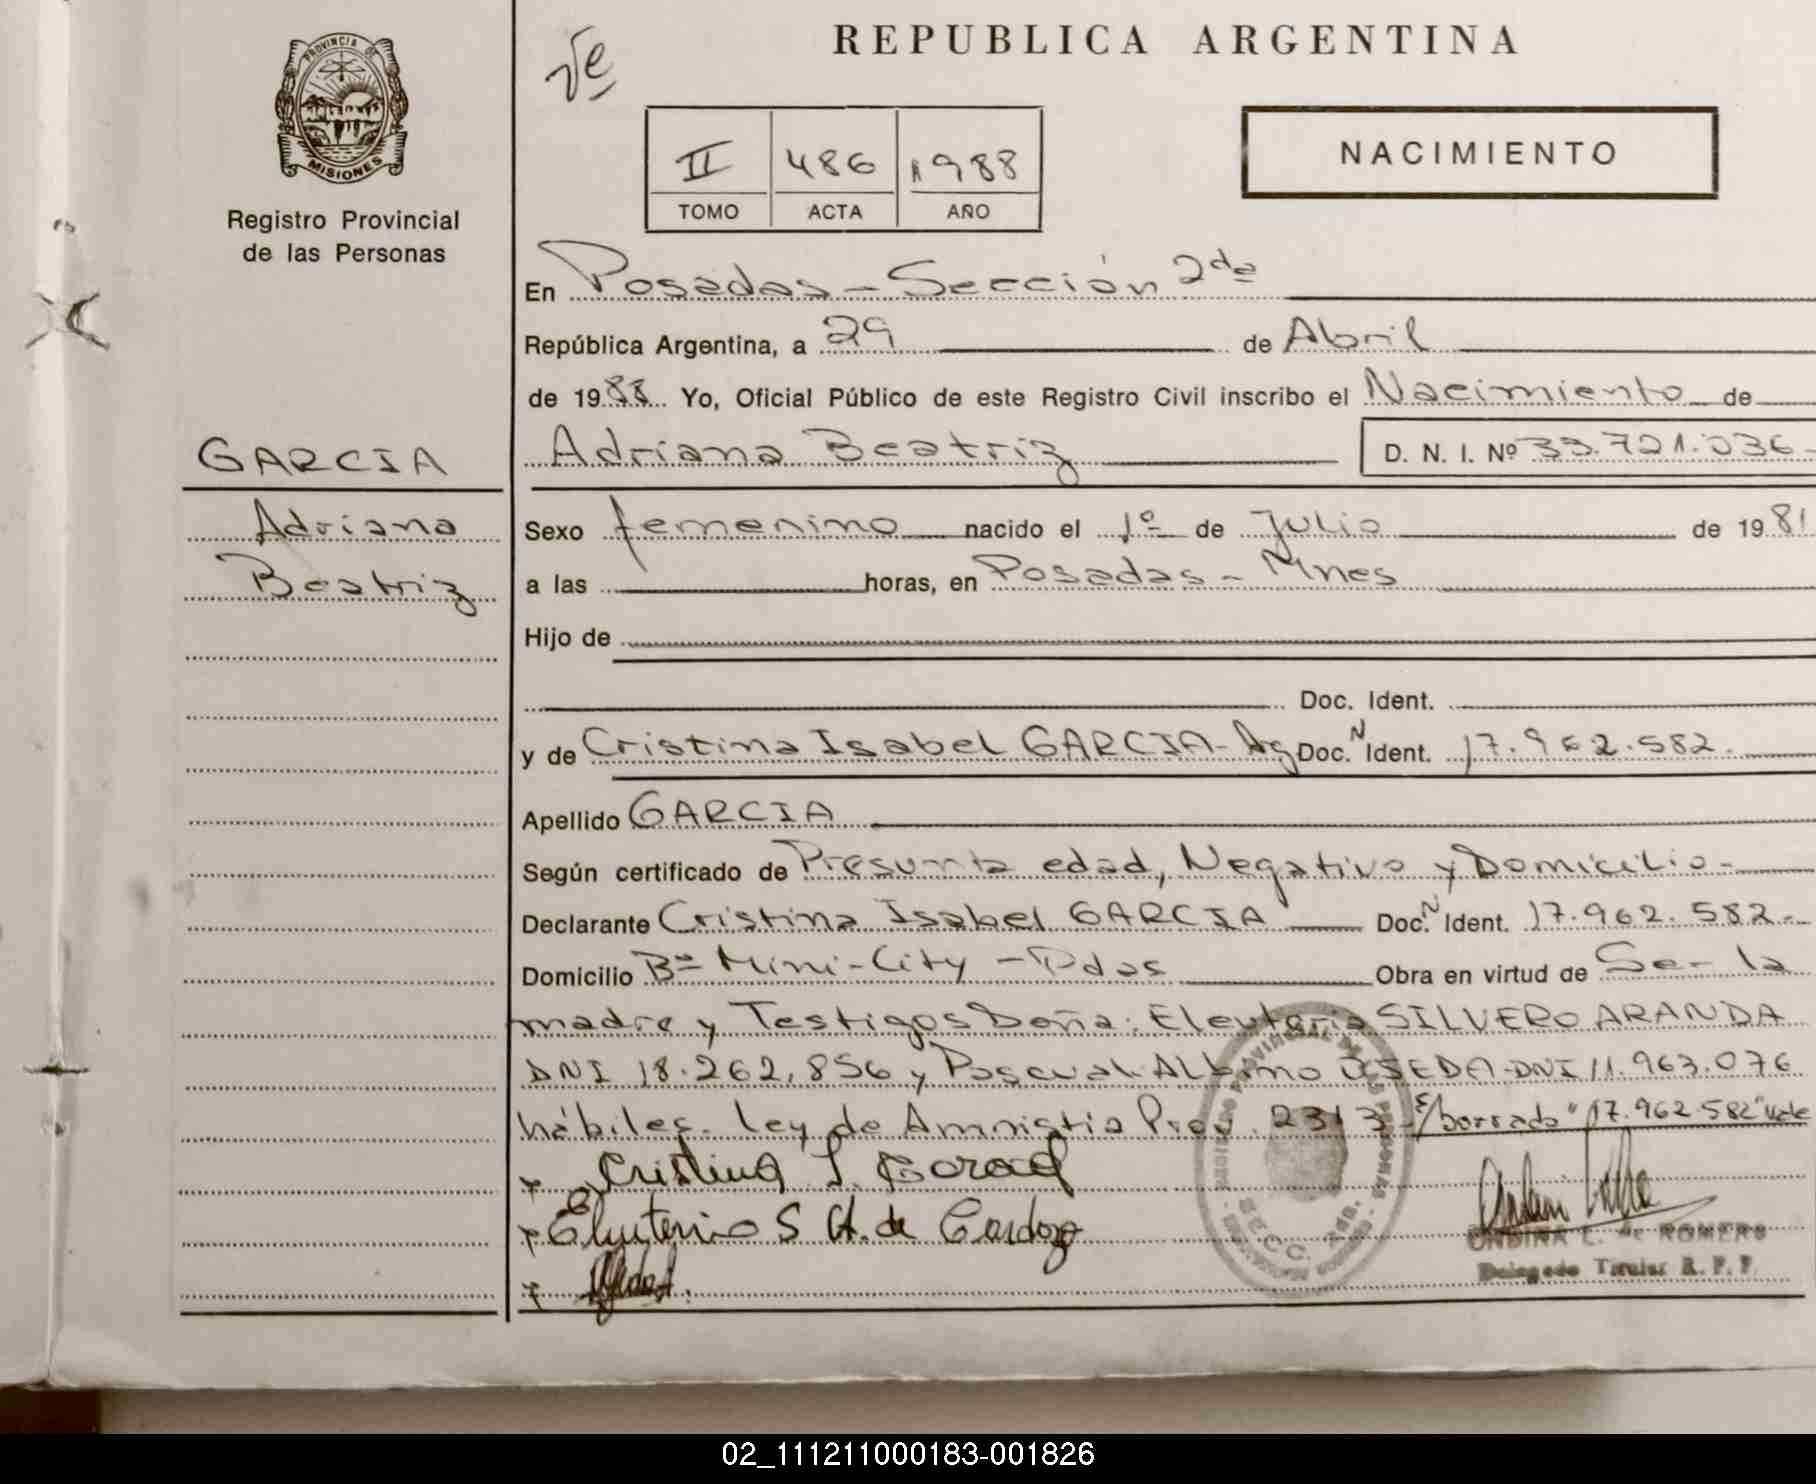 PROVINCIA DE
MISIONES
Registro Provincial
de las Personas
REPUBLICA ARGENTINA
NACIMIENTO
II 486 1988
TOMO ACTA AÑO
En Posadas - Sección 2da
República Argentina, a 29 de Abril
de 1988. Yo, Oficial Público de este Registro Civil inscribo el Nacimiento de
GARCIA
Adriana
Beatriz
Adriana Beatriz D. N. I. Nº 33.721.036-
Sexo femenino nacido el 1º de Julio de 1981
a las horas, en Posadas - Mnes
Hijo de
Doc. Ident.
y de Cristina Isabel GARCIA - Ag Doc. N Ident. 17.962.582.
Apellido GARCIA
Según certificado de Presunta edad, Negativo y Domicilio-
Declarante Cristina Isabel GARCIA Doc. N Ident. 17.962.582-
Domicilio Bº Mini-City - Pdas Obra en virtud de Ser la
madre y Testigos Doña: Eleuteria SILVERO ARANDA
DNI 18.262.856 y Pascual Albino USEDA-DNI 11.963.076
hábiles. Ley de Amnistia Prov. 2313- E/borrado "17.962.582" Vale
Cristina I.
S A. de Cardozo
ONDINA L. de ROMERO
Delegado Titular R. P. P.
REGISTRO PROVINCIAL DE LAS PERSONAS
SECC. 2da.
02_111211000183-001826